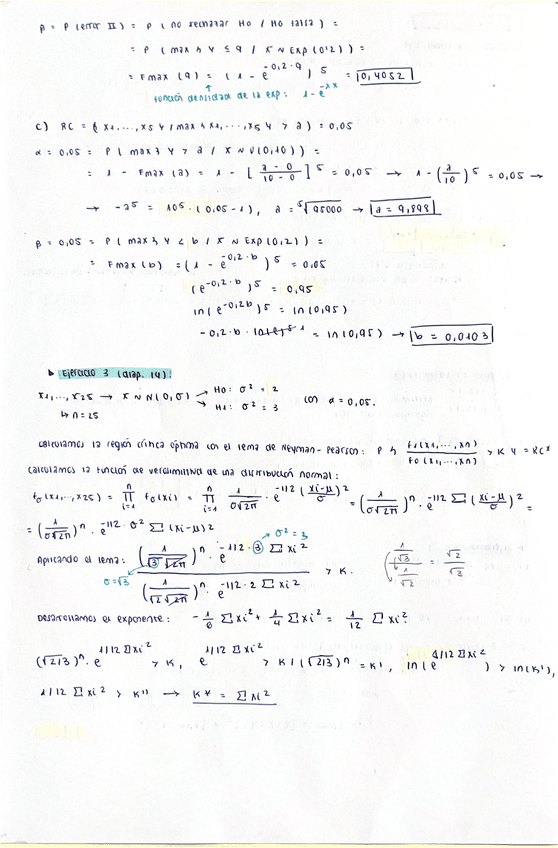 β = P (error II) = P ( no rechazar Ho / Ho falsa ) =
= P ( max { } ≤ 9 / X ~ Exp (0'2) ) =
= Fmax (9) = ( 1 - e^{-0,2·9} )^5 = 0,4052
función densidad de la exp: 1 - e^{-λx}
c) RC = { x1, ..., x5 } / max { x1, ..., x5 } > a ) = 0,05
α = 0,05 = P ( max { } > a / X ~ U (0,10) ) =
= 1 - Fmax (a) = 1 - [ (a - 0)/(10 - 0) ]^5 = 0,05 → 1 - (a/10)^5 = 0,05 →
→ -a^5 = 10^5 · (0,05 - 1), a = ⁵√95000 → a = 9,898
β = 0,05 = P ( max { } < b / X ~ Exp (0,2) ) =
= Fmax (b) = ( 1 - e^{-0,2·b} )^5 = 0,05
(e^{-0,2·b})^5 = 0,95
ln (e^{-0,2b})^5 = ln (0,95)
-0,2·b · = ln (0,95) → b = 0,0103
Ejercicio 3 (diap. 14):
x1, ..., x25 → X ~ N (0, σ) → H0: σ² = 2
→ H1: σ² = 3
con α = 0,05.
↳ n = 25
Calculamos la región crítica óptima con el lema de Neyman-Pearson: P { f1(x1, ..., xn) / f0(x1, ..., xn) > K } = RC*
Calculamos la función de verosimilitud de una distribución normal:
fσ (x1, ..., x25) = ∏_{i=1}^{n} fσ (xi) = ∏_{i=1}^{n} 1/(σ√2π) · e^{-1/2 ((xi-μ)/σ)²} = (1/(σ√2π))^n · e^{-1/2 Σ ((xi-μ)/σ)²} =
= (1/(σ√2π))^n · e^{-1/2 · σ² Σ (xi-μ)²}
σ² = 3
Aplicando el lema: (1/(√3 √2π))^n · e^{-1/2 · 3 Σ xi²} / (1/(√2 √2π))^n · e^{-1/2 · 2 Σ xi²} > K.
σ = √3
( (1/√3) / (1/√2) = √2/√3
Desarrollamos el exponente: -1/6 Σ xi² + 1/4 Σ xi² = 1/12 Σ xi²
(√2/3)^n · e^{1/12 Σ xi²} > K, e^{1/12 Σ xi²} > K / (√2/3)^n = K', ln (e^{1/12 Σ xi²}) > ln (K'),
1/12 Σ xi² > K'' → K* = Σ xi²